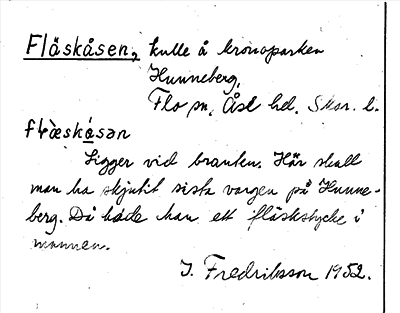 Fläskåsen, kulle å kronoparken
Hunneberg,
Flo sn, Åse hd. Skar. l.
flæ̀skǻsən
Ligger vid branten. Här skall
man ha skjutit sista vargen på Hunne-
berg. Då hade han ett fläskstycke i
munnen.
I. Fredriksson 1952.